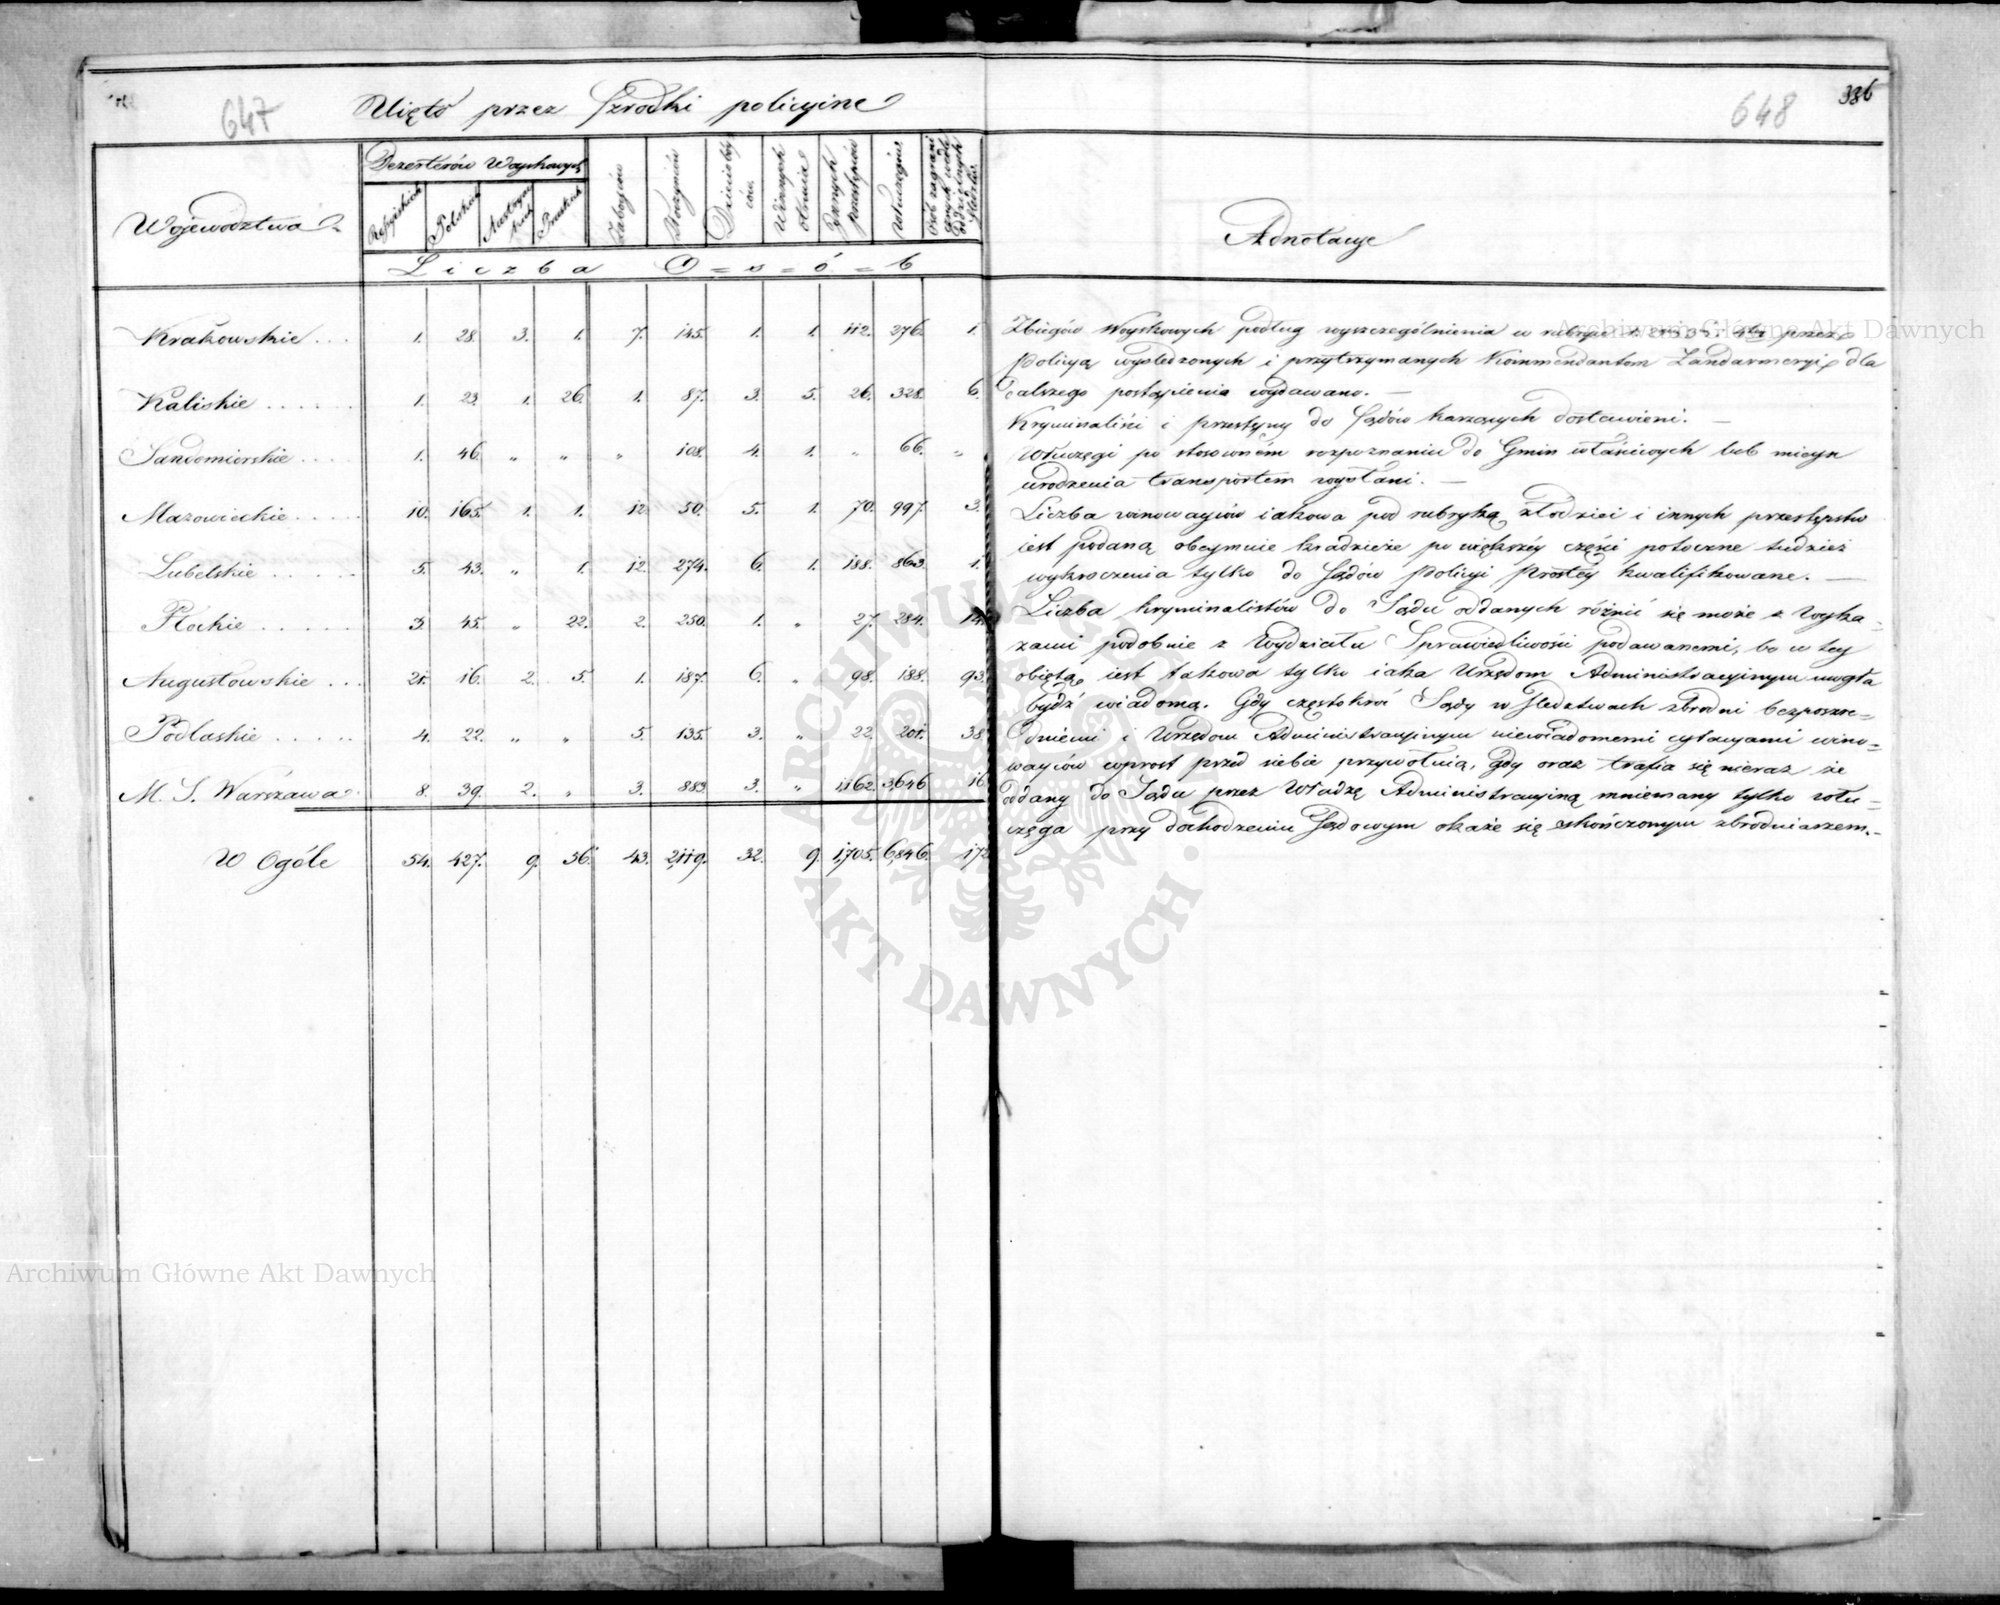 647
Ujęto przez Szrodki policyine
648
386
Województwa
Dezerterów Woyskowych
Rossyiskich
Polskich
Austryackich
Pruskich
Zabójców
Złodziei
Dzieciobójców
Innych przestępców
Włóczęgów
Liczba Osób
Adnotacye
Krakowskie . . . 1. 28. 3. 1. 7. 145. 1. 1. 112. 276. 1.
Kaliskie . . . . . 1. 23. 1. 26. 1. 87. 3. 5. 26. 328. 6.
Sandomierskie . . . . 1. 46. „ „ „ 108. 4. 1. „ 66. „
Mazowieckie . . . . 10. 165. 1. 1. 12. 50. 5. 1. 70. 997. 3.
Lubelskie . . . . . 5. 43. „ 1. 12. 274. 6. 1. 188. 863. 1.
Płockie . . . . . 3. 45. „ 22. 2. 250. 1. „ 27. 284. 14.
Augustowskie . . . 21. 16. 2. 5. 1. 187. 6. „ 98. 188. 93.
Podlaskie . . . . . 4. 22. „ „ 5. 135. 3. „ 22. 201. 38.
M. S. Warszawa 8. 39. 2. „ 3. 883. 3. „ 1,162. 3,646 16.
W Ogóle 54. 427. 9. 56. 43. 2,119. 32. 9. 1,705. 6,846. 172.
Zbiegów Woyskowych podług wyszczególnienia w rubryce przez
Policyą wyśledzonych i przytrzymanych Kommendantom Żandarmeryi dla
dalszego postąpienia wydawano. —
Kryminaliści i przestępcy do Sądów karzących dostawieni. —
Włuczęgi po stosowném rozpoznaniu do Gmin właściwych lub mieysc
urodzenia transportem wysłani. —
Liczba winowayców iakowa pod rubryką złodziei i innych przestępstw
iest podaną obeymuie kradzieże po większéy części potoczne tudzież
wykroczenia tylko do Sądów Policyi Prostéy kwalifikowane. —
Liczba kryminalistów do Sądu oddanych różnić się może z wyka=
zami podobnie z Wydziału Sprawiedliwości podawanemi, bo w tey
obiętą iest takowa tylko iaka Urzędom Administracyinym mogła
bydź wiadomą. Gdy częstokroć Sądy w śledztwach zbrodni bezpośre=
dniemi i Urzędom Administracyinym niewiadomemi cytacyami wino=
wayców wprost przed siebie przywołuią, Gdy oraz trafia się nieraz że
oddany do Sądu przez Władzę Administracyiną mniemany tylko włu=
częga przy dochodzeniu Sądowym okaże się skończonym zbrodniarzem. —
Archiwum Główne Akt Dawnych
Archiwum Główne Akt Dawnych
ARCHIWUM
AKT DAWNYCH